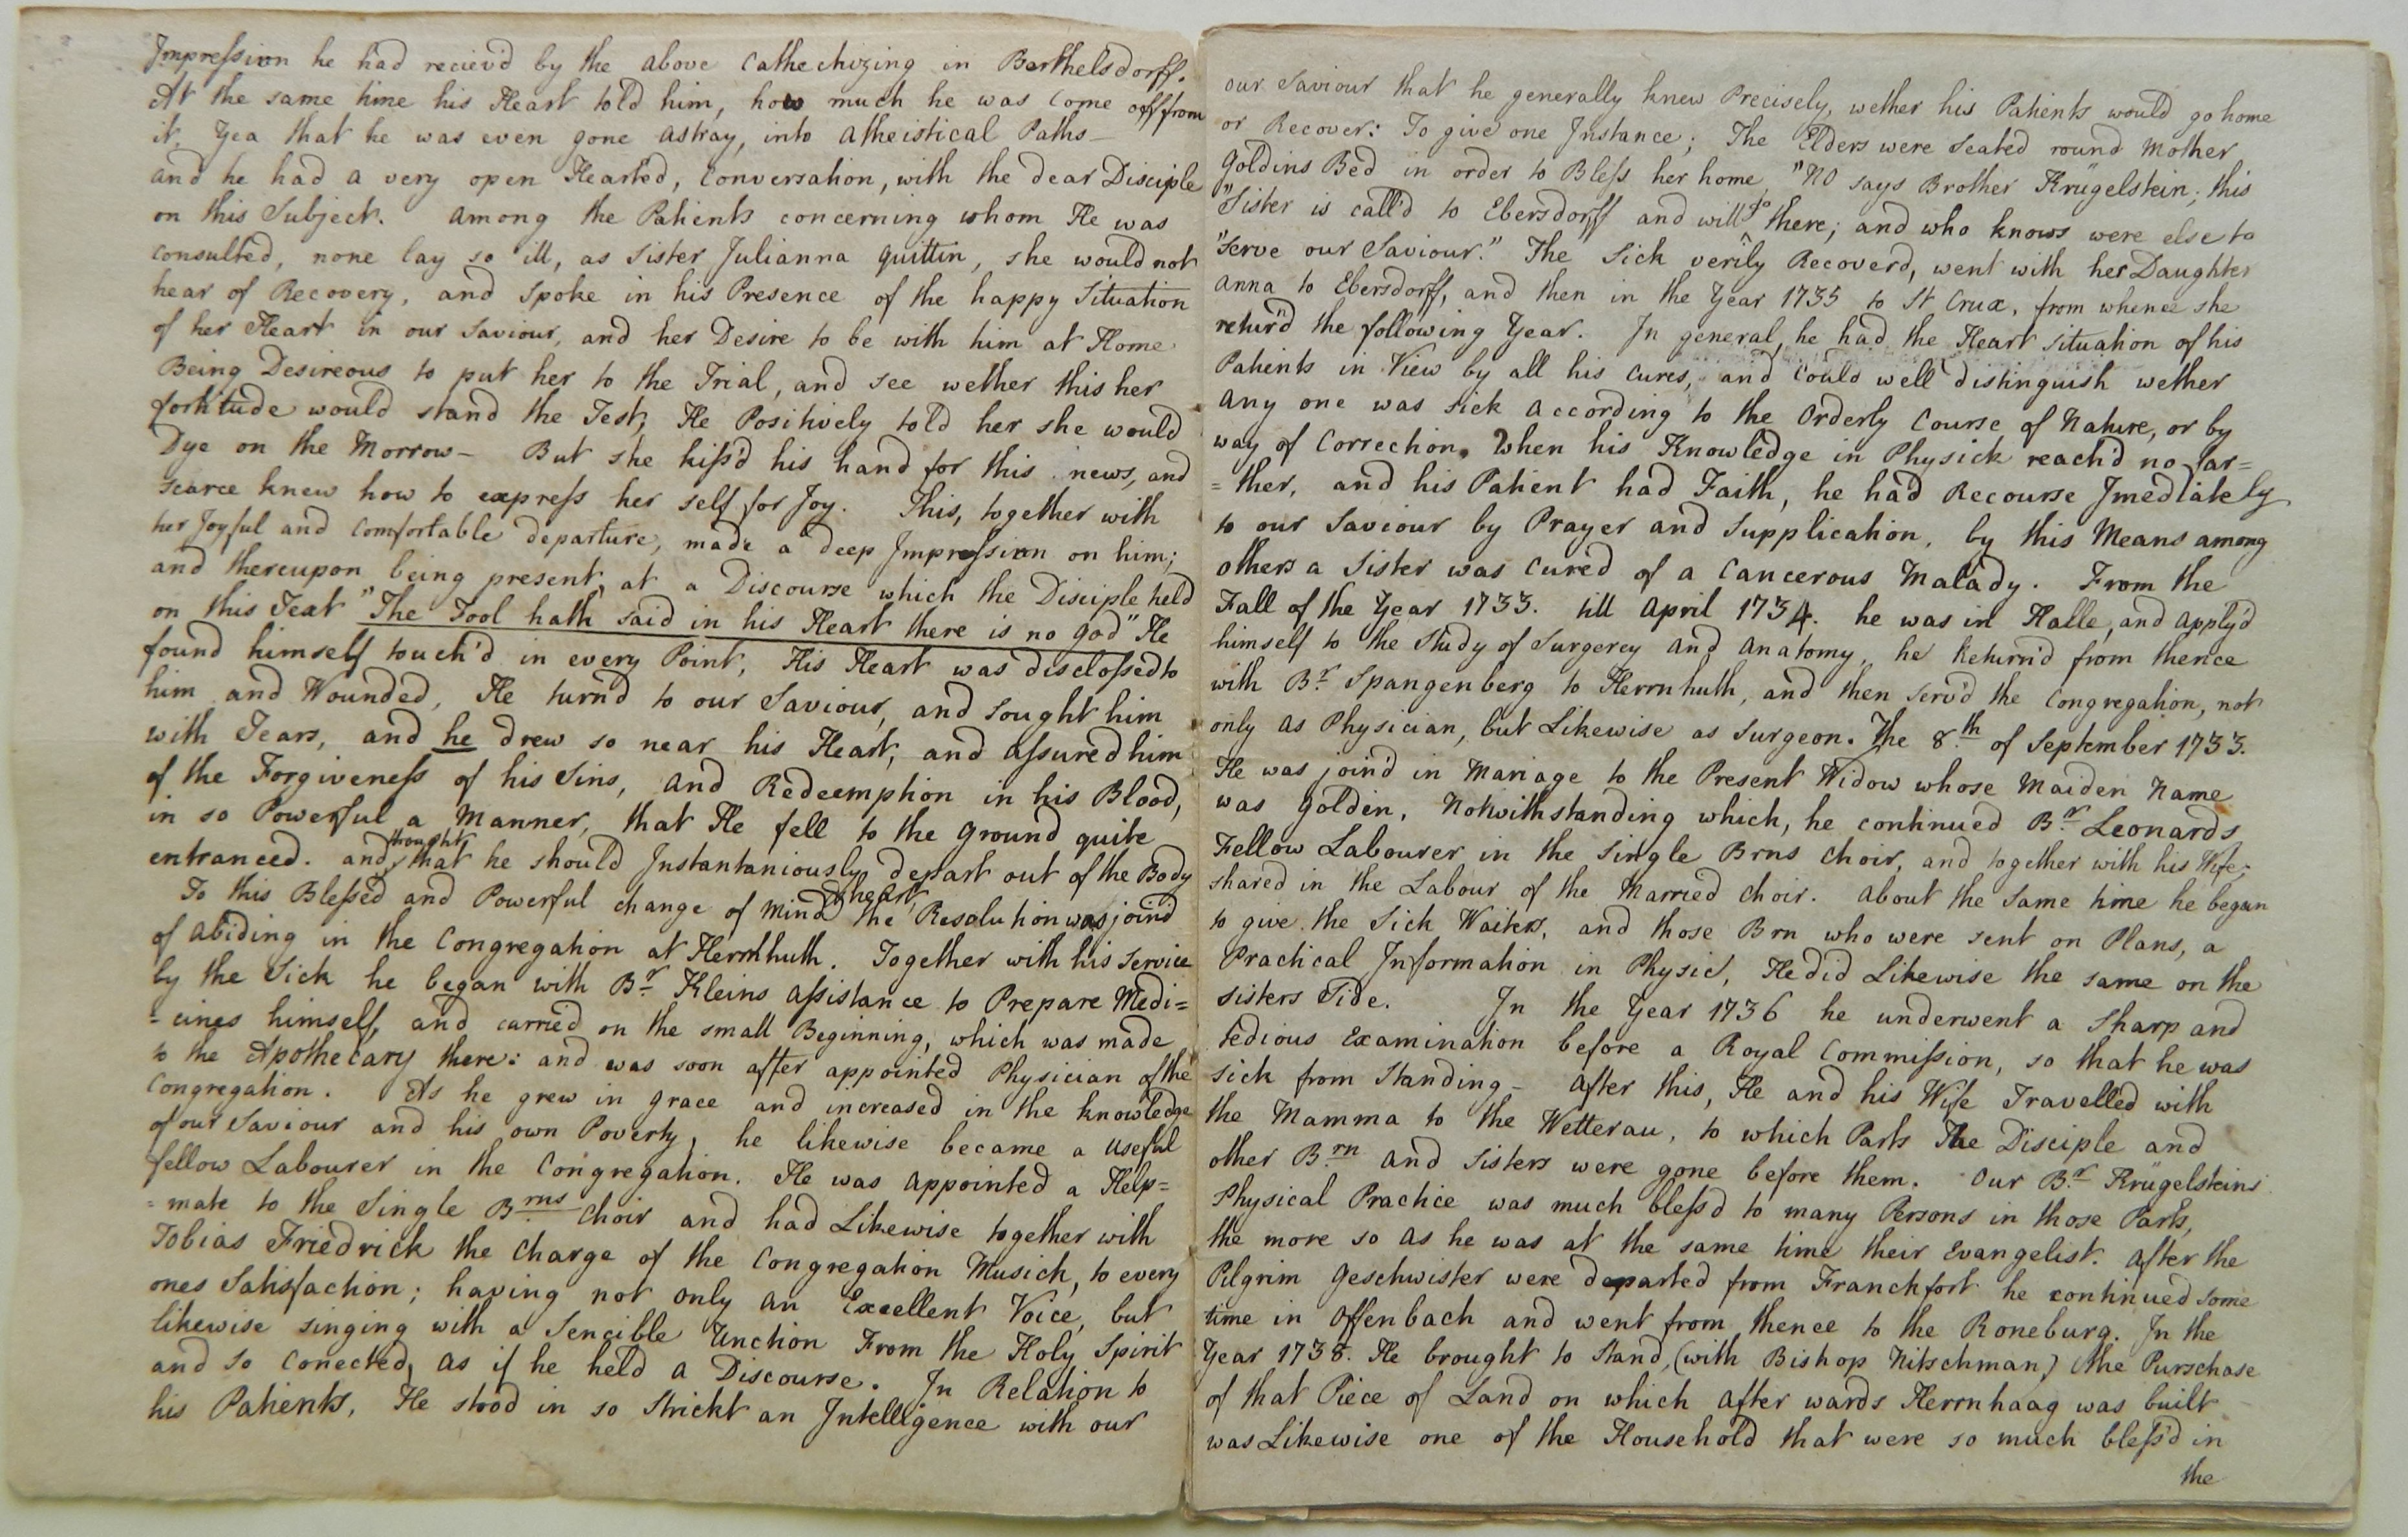 Impression he had reciev'd by the above Cathechizing in Berthelsdorff.
At the same time his Heart told him, how much he was come off from
it, Yea that he was even gone astray, into Atheistical Paths—
and he had a very open Hearted, Conversation, with the dear Disciple
on this Subject. Among the Patients concerning whom He was
consulted, none lay so ill, as Sister Julianna Quittin, she would not
hear of Recovery, and Spoke in his Presence of the happy Situation
of her Heart in our Saviour, and her Desire to be with him at Home
Being Desireous to put her to the Trial, and see wether this her
fortitude would stand the Test, He Positively told her she would
Dye on the Morrow— But she kiss'd his hand for this news, and
scarce knew how to express her self for Joy. This, together with
her Joyful and Comfortable departure, made a deep Impression on him;
and thereupon being present, at a Discourse which the Disciple held
on this Text "The Fool hath said in his Heart there is no God" He
found himself touch'd in every Point, His Heart was disclossed to
him and Wounded, He turn'd to our Saviour, and sought him
with Tears, and he drew so near his Heart, and assured him
of the Forgiveness of his Sins, and Redeemption in his Blood,
in so Powerful a Manner, that He fell to the Ground quite
entranced. and thought that he should Instantaniously depart out of the Body
To this Blessed and Powerful change of Mind & heart the Resolution was join'd
of abiding in the Congregation at Herrnhuth. Together with his Service
by the Sick he began with Br. Kleins assistance to Prepare Medi=
=cines himself, and carried on the small Beginning, which was made
to the Apothecary there: and was soon after appointed Physician of the
Congregation. As he grew in Grace and increased in the knowledge
of our Saviour and his own Poverty, he likewise became a useful
fellow Labourer in the Congregation. He was appointed a Help=
=mate to the Single Brns Choir and had Likewise together with
Tobias Friedrick the Charge of the Congregation Musick, to every
ones Satisfaction; having not only an Excellent Voice, but
likewise singing with a Sencible Unction From the Holy Spirit
and so Conected, as if he held a Discourse. In Relation to
his Patients, He stood in so Strickt an Intelligence with our
our Saviour that he generally knew Precisely, wether his Patients would go home
or Recover: To give one Instance; The Elders were Seated round Mother
Goldins Bed in order to Bless her home, "No says Brother Krügelstein; this
"Sister is call'd to Ebersdorff and will go there; and who knows were else to
"Serve our Saviour." The Sick verily Recover'd, went with her Daughter
Anna to Ebersdorff, and then in the Year 1735 to St Crux, from whence she
return'd the following Year. In general, he had the Heart Situation of his
Patients in View by all his Cures, and Could well distinguish wether
any one was sick according to the Orderly Course of Nature, or by
way of Correction. When his Knowledge in Physick reach'd no far=
=ther, and his Patient had Faith, he had Recourse Imediately
to our Saviour by Prayer and Supplication, by this Means among
others a Sister was Cured of a Cancerous Malady. From the
Fall of the Year 1733. till April 1734. he was in Halle, and apply'd
himself to the Study of Surgerey and Anatomy, he Return'd from thence
with Br. Spangenberg to Herrnhuth, and then serv'd the Congregation, not
only as Physician, but Likewise as Surgeon. The 8th of September 1733.
He was join'd in Mariage to the Present Widow whose Maiden Name
was Goldin, Notwithstanding which, he continued Br. Leonards
Fellow Labourer in the Single Brns Choir, and together with his Wife,
shared in the Labour of the Married Choir. About the Same time he began
to give the Sick Waiters, and those Brn who were sent on Plans, a
Practical Information in Physic, He did Likewise the same on the
Sisters Side. In the Year 1736 he underwent a Sharp and
tedious Examination before a Royal Commission, so that he was
sick from Standing— After this, He and his Wife Travelled with
the Mamma to the Wetterau, to which Parts The Disciple and
other Brn and Sisters were gone before them. Our Br. Krügelsteins
Physical Practice was much bless'd to many Persons in those Parts,
the more so as he was at the same time their Evangelist. After the
Pilgrim Geschwister were departed from Franckfort he continued some
time in Offenbach and went from thence to the Roneburg. In the
Year 1738. He brought to Stand, (with Bishop Nitschman) the Purschase
of that Piece of Land on which after wards Herrnhaag was built
was Likewise one of the Household that were so much bless'd in
the